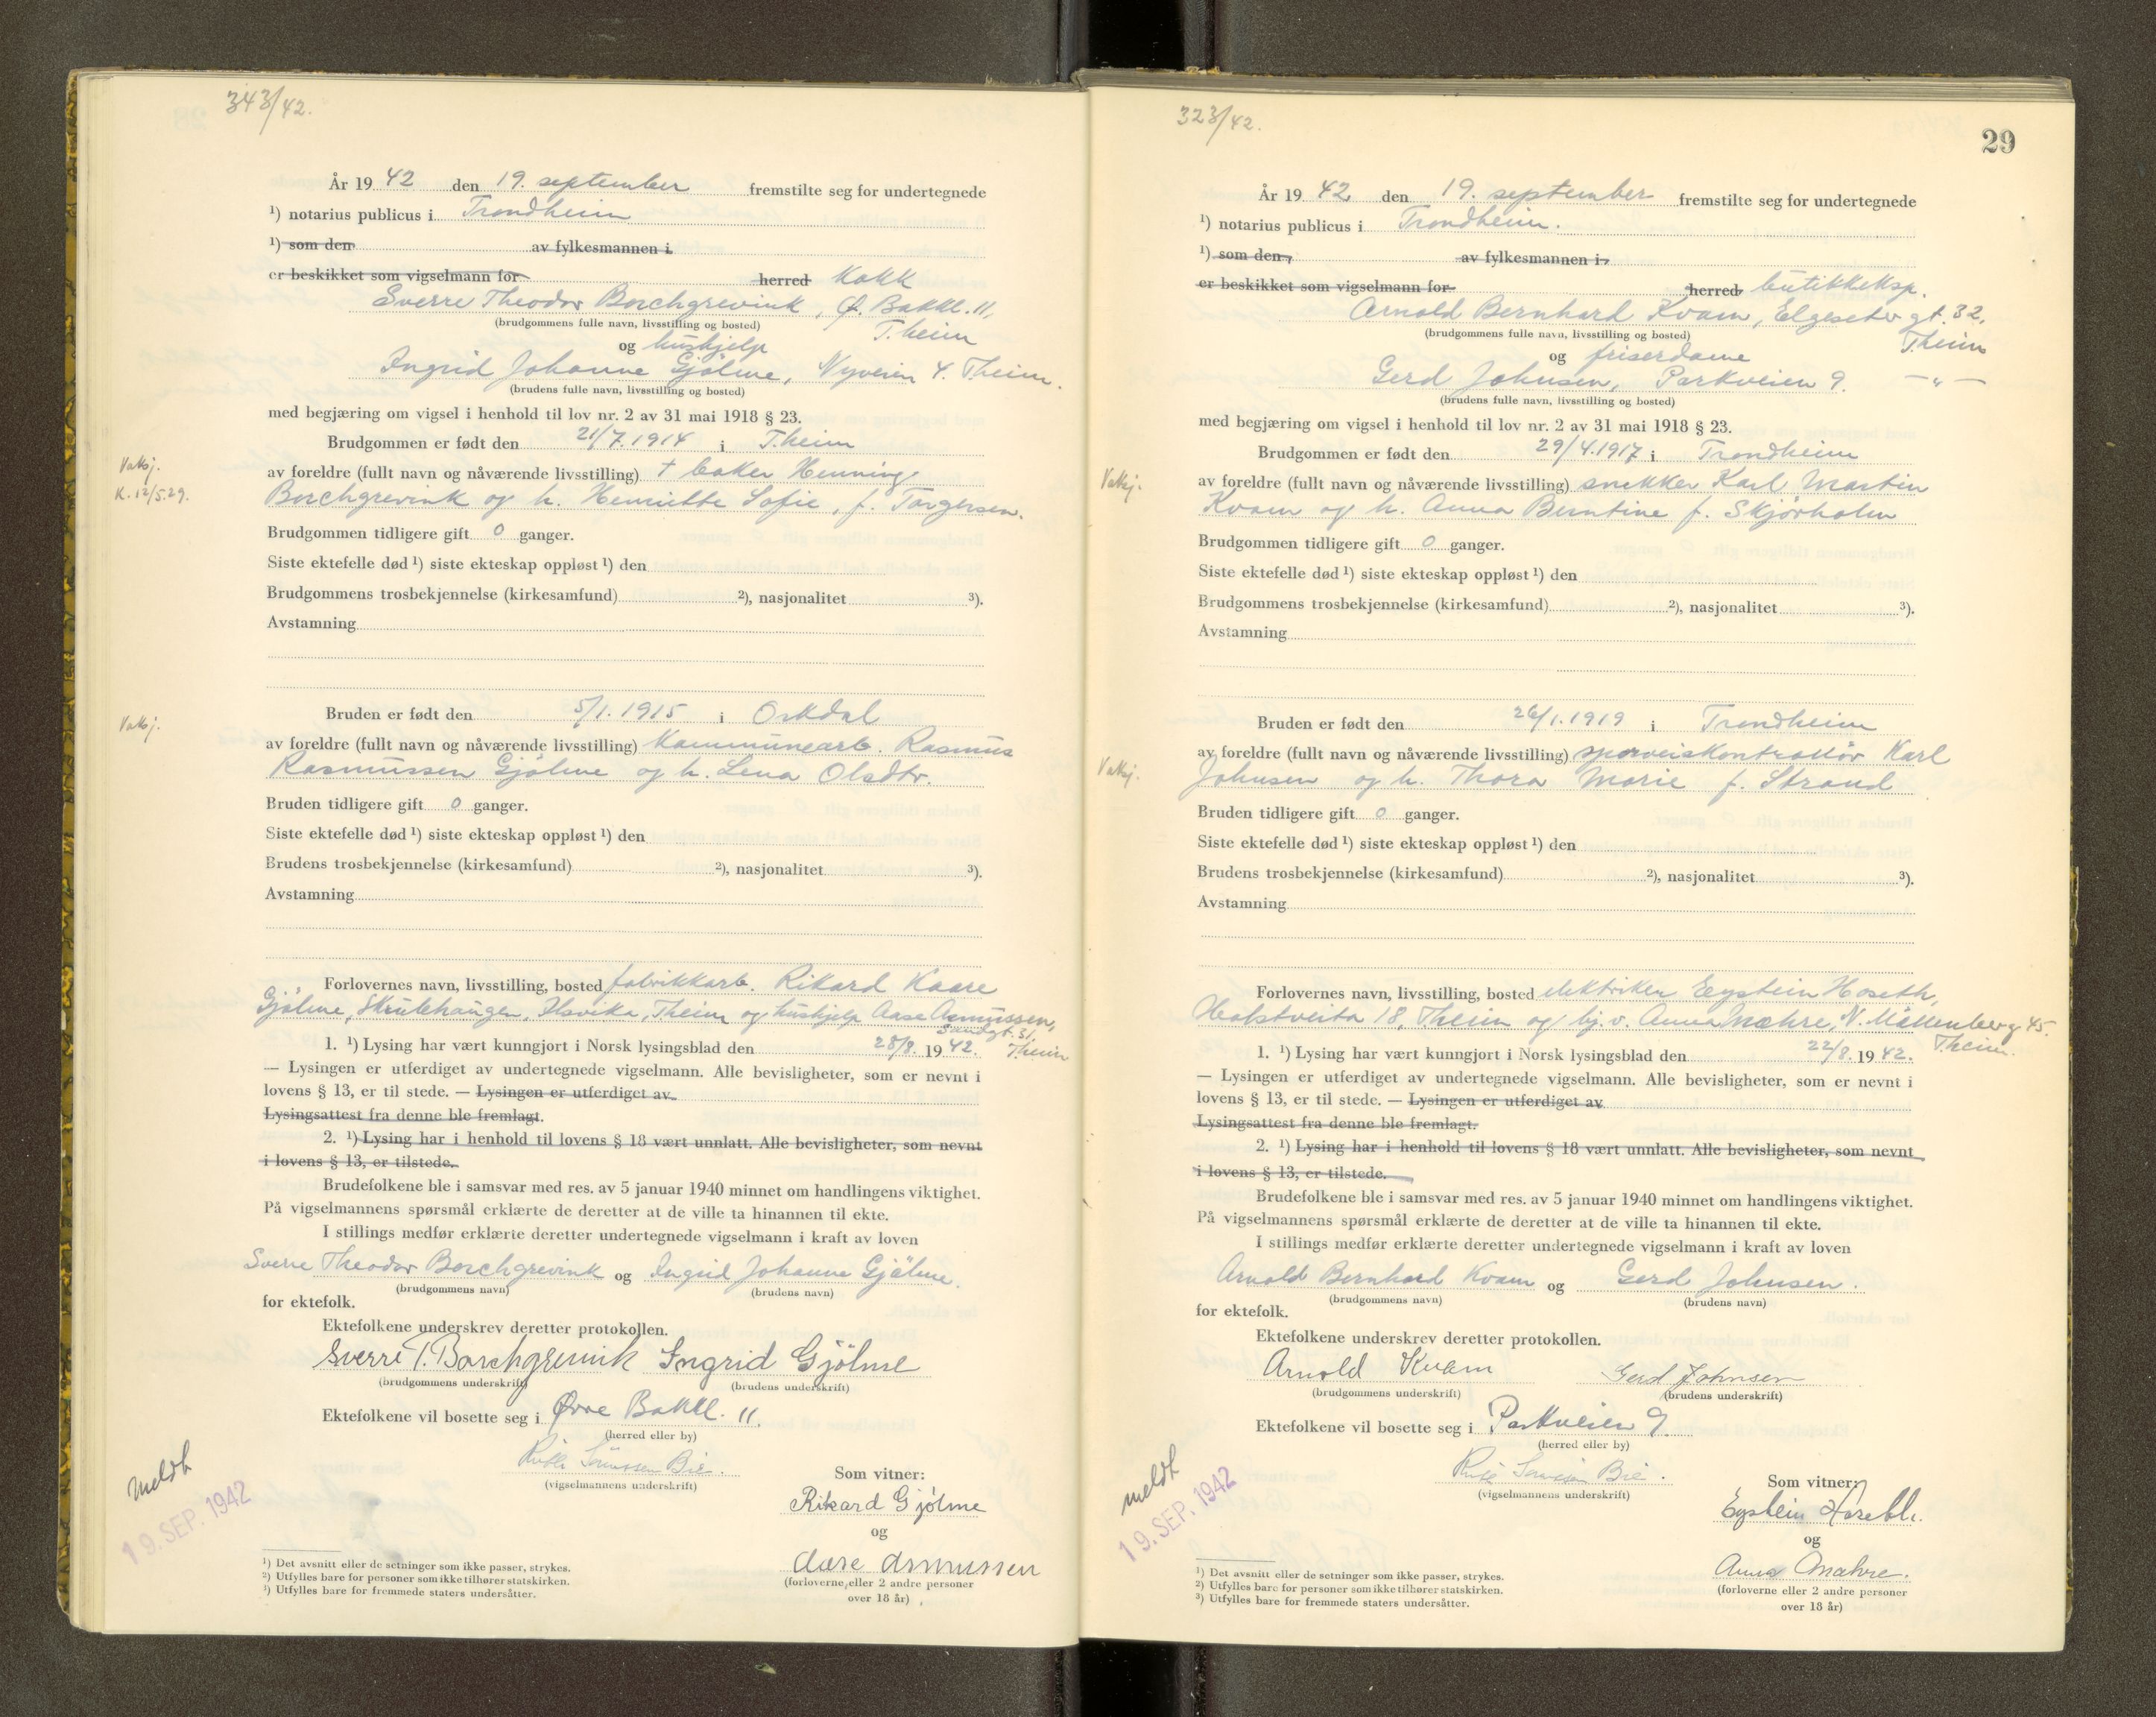 343/42.
År 19 42 den 19. september fremstilte seg for undertegnede
¹) notarius publicus i Trondheim
¹) som den av fylkesmannen i
er beskikket som vigselmann for herred Kokk
Sverre Theodor Borchgrevink, Ø. Bakkl. 11,
(brudgommens fulle navn, livsstilling og bosted) T.heim
og hushjelp
Ingrid Johanne Gjølme, Nyveien 4. Theim.
(brudens fulle navn, livsstilling og bosted)
med begjæring om vigsel i henhold til lov nr. 2 av 31 mai 1918 § 23.
Brudgommen er født den 21/7.1914 i T.heim
Vaksj.
av foreldre (fullt navn og nåværende livsstilling) + baker Henning
K. 12/5.29.
Borchgrevink og h. Henriette Sofie, f. Torgersen.
Brudgommen tidligere gift 0 ganger.
Siste ektefelle død ¹) siste ekteskap oppløst ¹) den
Brudgommens trosbekjennelse (kirkesamfund) ²), nasjonalitet ³).
Avstamning
Bruden er født den 5/1.1915 i Orkdal
Vaksj.
av foreldre (fullt navn og nåværende livsstilling) Kommunearb. Rasmus
Rasmussen Gjølme og h. Lena Olsdtr.
Bruden tidligere gift 0 ganger.
Siste ektefelle død ¹) siste ekteskap oppløst ¹) den
Brudens trosbekjennelse (kirkesamfund) ²), nasjonalitet ³).
Avstamning
Forlovernes navn, livsstilling, bosted fabrikkarb. Rikard Kaare
Gjølme, Skrutehaugen, Ilsvika, Theim og hushjelp Aase Asmussen,
Sandgt. 31,
1. ¹) Lysing har vært kunngjort i Norsk lysingsblad den 28/8. 19 42. Theim
— Lysingen er utferdiget av undertegnede vigselmann. Alle bevisligheter, som er nevnt i
lovens § 13, er til stede. — Lysingen er utferdiget av
Lysingsattest fra denne ble fremlagt.
2. ¹) Lysing har i henhold til lovens § 18 vært unnlatt. Alle bevisligheter, som nevnt
i lovens § 13, er tilstede.
Brudefolkene ble i samsvar med res. av 5 januar 1940 minnet om handlingens viktighet.
På vigselmannens spørsmål erklærte de deretter at de ville ta hinannen til ekte.
I stillings medfør erklærte deretter undertegnede vigselmann i kraft av loven
Sverre Theodor Borchgrevink og Ingrid Johanne Gjølme.
(brudgommens navn) (brudens navn)
for ektefolk.
Ektefolkene underskrev deretter protokollen.
Sverre T. Borchgrevink Ingrid Gjølme
(brudgommens underskrift) (brudens underskrift)
Ektefolkene vil bosette seg i Øvre Bakkl. 11.
(herred eller by)
(vigselmannens underskrift)
Som vitner:
Rikard Gjølme
og
Aase Asmussen
(forloverne eller 2 andre personer
over 18 år)
meldt
19. SEP. 1942
¹) Det avsnitt eller de setninger som ikke passer, strykes.
²) Utfylles bare for personer som ikke tilhører statskirken.
³) Utfylles bare for fremmede staters undersåtter.
323/42.
29
År 19 42 den 19. september fremstilte seg for undertegnede
¹) notarius publicus i Trondheim.
¹) som den av fylkesmannen i
er beskikket som vigselmann for herred butikkeksp.
Arnold Bernhard Kvam, Elgeseter gt. 32,
(brudgommens fulle navn, livsstilling og bosted) T.heim
og friserdame
Gerd Johnsen, Parkveien 9. —"—
(brudens fulle navn, livsstilling og bosted)
med begjæring om vigsel i henhold til lov nr. 2 av 31 mai 1918 § 23.
Brudgommen er født den 29/4.1917 i Trondheim
Vaksj.
av foreldre (fullt navn og nåværende livsstilling) snekker Karl Martin
Kvam og h. Anna Berntine f. Skjørholm
Brudgommen tidligere gift 0 ganger.
Siste ektefelle død ¹) siste ekteskap oppløst ¹) den
Brudgommens trosbekjennelse (kirkesamfund) ²), nasjonalitet ³).
Avstamning
Bruden er født den 26/1.1919 i Trondheim
av foreldre (fullt navn og nåværende livsstilling) sporveiskontrollør Karl
Vaksj.
Johnsen og h. Thora Marie f. Strand
Bruden tidligere gift 0 ganger.
Siste ektefelle død ¹) siste ekteskap oppløst ¹) den
Brudens trosbekjennelse (kirkesamfund) ²), nasjonalitet ³).
Avstamning
Forlovernes navn, livsstilling, bosted elektriker Eystein Hoseth,
18, Theim og hj.v. Anna Mæhre, N. Møllenberg 45.
1. ¹) Lysing har vært kunngjort i Norsk lysingsblad den 22/8. 19 42. T.heim.
— Lysingen er utferdiget av undertegnede vigselmann. Alle bevisligheter, som er nevnt i
lovens § 13, er til stede. — Lysingen er utferdiget av
Lysingsattest fra denne ble fremlagt.
2. ¹) Lysing har i henhold til lovens § 18 vært unnlatt. Alle bevisligheter, som nevnt
i lovens § 13, er tilstede.
Brudefolkene ble i samsvar med res. av 5 januar 1940 minnet om handlingens viktighet.
På vigselmannens spørsmål erklærte de deretter at de ville ta hinannen til ekte.
I stillings medfør erklærte deretter undertegnede vigselmann i kraft av loven
Arnold Bernhard Kvam og Gerd Johnsen.
(brudgommens navn) (brudens navn)
for ektefolk.
Ektefolkene underskrev deretter protokollen.
Arnold Kvam Gerd Johnsen
(brudgommens underskrift) (brudens underskrift)
Ektefolkene vil bosette seg i Parkveien 9.
(herred eller by)
(vigselmannens underskrift)
Som vitner:
Eystein Hoseth.
og
Anna Mæhre.
(forloverne eller 2 andre personer
over 18 år)
meldt
19. SEP. 1942
¹) Det avsnitt eller de setninger som ikke passer, strykes.
²) Utfylles bare for personer som ikke tilhører statskirken.
³) Utfylles bare for fremmede staters undersåtter.